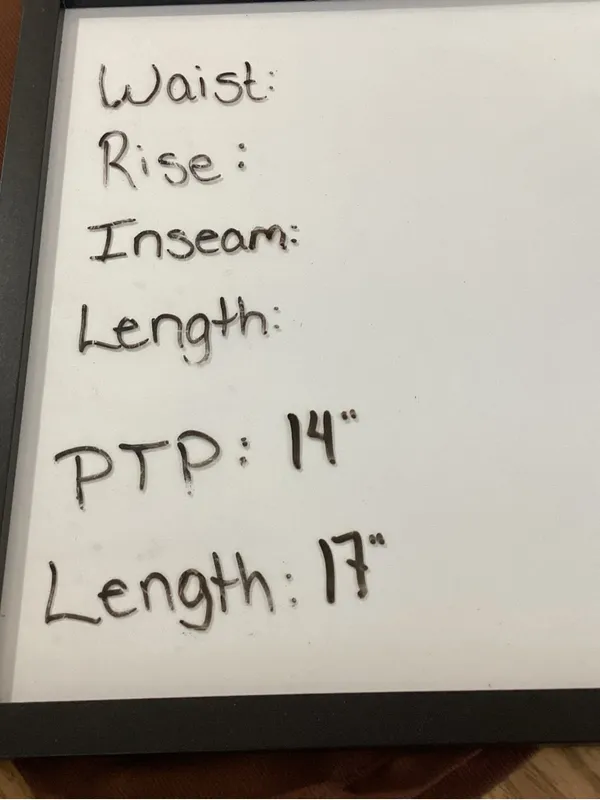 Waist:
Rise:
Inseam:
Length:
PTP: 14"
Length: 17"